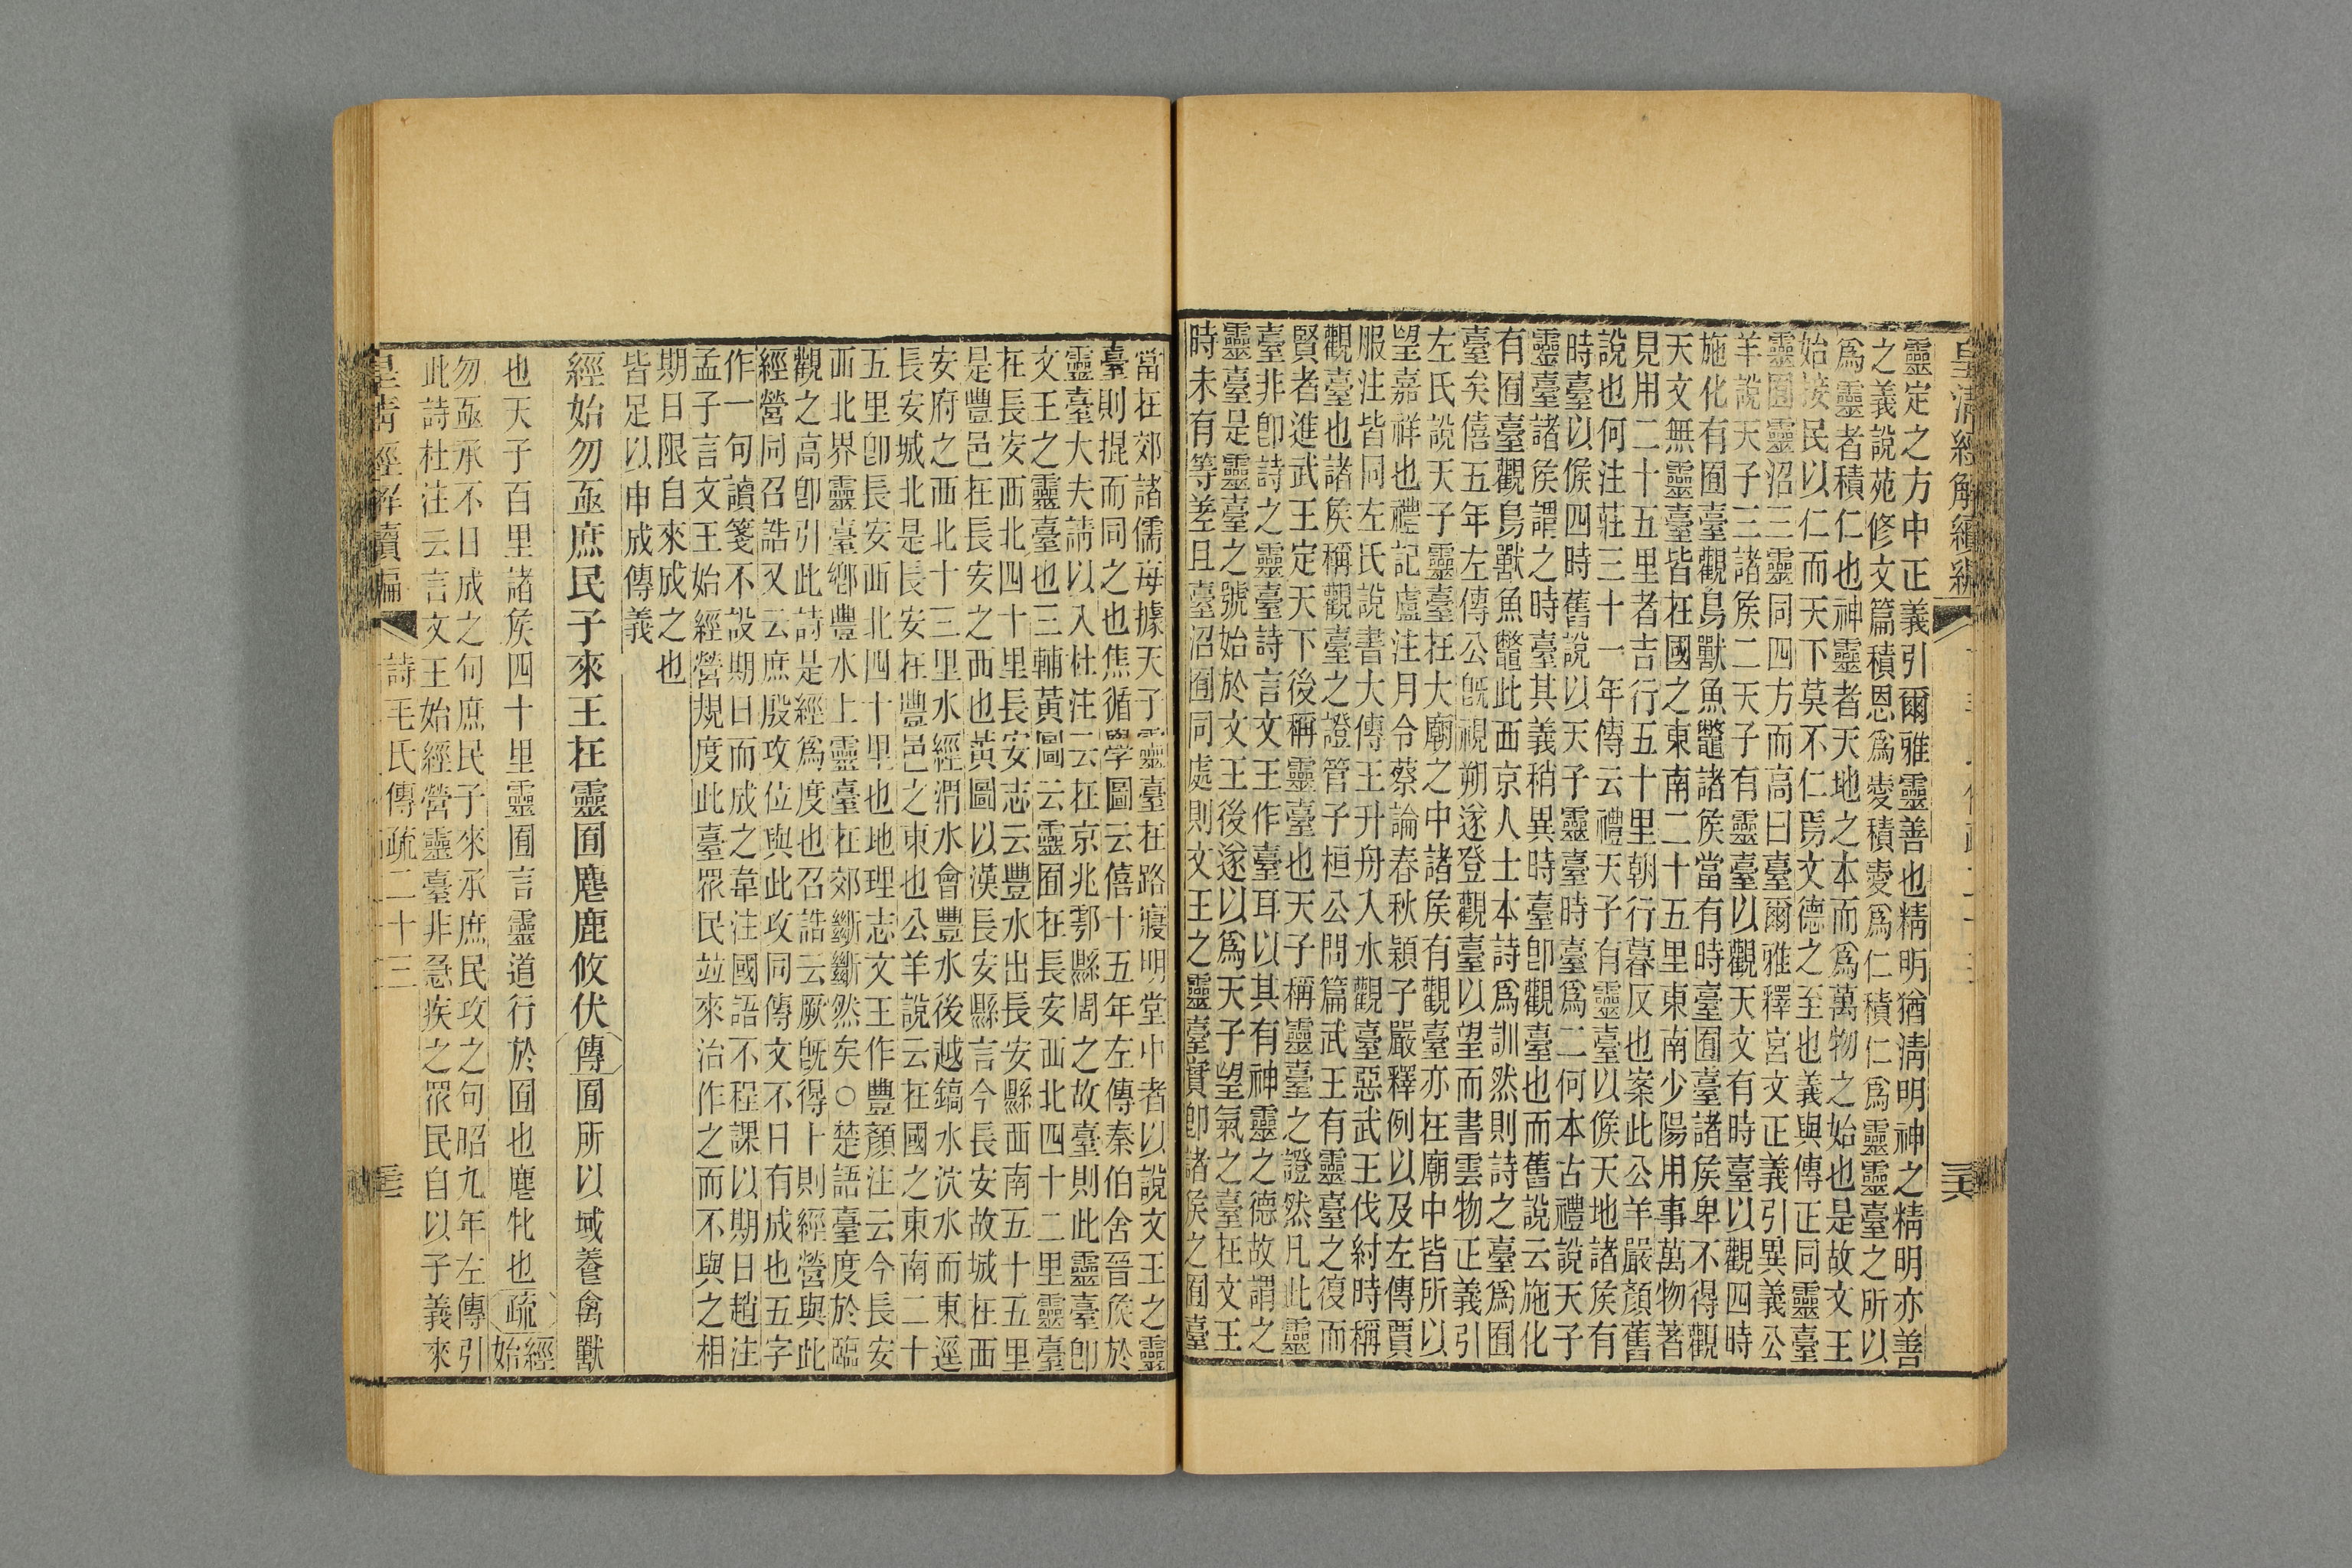 皇清經解續編
靈定之方中正義引爾雅靈善也精明猶淸明神之精明亦善
之義說苑修文篇積恩爲愛積愛爲仁積仁爲靈靈臺之所以
爲靈者積仁也神靈者天地之本而爲萬物之始也是故文王
始接民以仁而天下莫不仁焉文德之至也義與傳正同靈臺
靈囿靈沼三靈同四方而高曰臺爾雅釋宮文正義引異義公
羊說天子三諸矦二天子有靈臺以觀天文有時臺以觀四時
施化有囿臺觀鳥獸魚鼈諸矦當有時臺囿臺諸矦卑不得觀
天文無靈臺皆在國之東南二十五里東南少陽用事萬物著
見用二十五里者吉行五十里朝行暮反也案此公羊嚴顏舊
說也何注莊三十一年傳云禮天子有靈臺以候天地諸矦有
時臺以候四時舊說以天子靈臺時臺爲二何本古禮說天子
靈臺諸矦謂之時臺其義稍異時臺卽觀臺也而舊說云施化
有囿臺觀鳥獸魚鼈此西京人士本詩爲訓然則詩之臺爲囿
臺矣僖五年左傳公旣視朔遂登觀臺以望而書雲物正義引
左氏說天子靈臺在大廟之中諸矦有觀臺亦在廟中皆所以
望嘉祥也禮記盧注月令蔡論春秋穎子嚴釋例以及左傳賈
服注皆同左氏說書大傳王升舟入水觀臺惡武王伐紂時稱
觀臺也諸矦稱觀臺之證管子桓公問篇武王有靈臺之復而
賢者進武王定天下後稱靈臺也天子稱靈臺之證然凡此靈
臺非卽詩之靈臺詩言文王作臺耳以其有神靈之德故謂之
靈臺是靈臺之號始於文王後遂以爲天子望氣之臺在文王
時未有等差且臺沼囿同處則文王之靈臺實卽諸矦之囿臺
當在郊諸儒每據天子靈臺在路寢明堂中者以說文王之靈
臺則掍而同之也焦循學圖云僖十五年左傳秦伯舍晉矦於
靈臺大夫請以入杜注云在京兆鄠縣周之故臺則此靈臺卽
文王之靈臺也三輔黃圖云靈囿在長安西北四十二里靈臺
在長安西北四十里長安志云豐水出長安縣西南五十五里
是豐邑在長安之西也黃圖以漢長安縣言今長安故城在西
安府之西北十三里水經渭水會豐水後越鎬水沇水而東逕
長安城北是長安在豐邑之東也公羊說云在國之東南二十
五里卽長安西北四十里也地理志文王作豐顏注云今長安
西北界靈臺鄉豐水上靈臺在郊斷斷然矣○楚語臺度於臨
觀之高卽引此詩是經爲度也召誥云厥旣得卜則經營與此
經營同召誥又云庶殷攻位與此攻同傳文不日有成也五字
作一句讀箋不設期日而成之韋注國語不程課以期日趙注
孟子言文王始經營規度此臺眾民竝來治作之而不與之相
期日限自來成之也
皆足以申成傳義
經始勿亟庶民子來王在靈囿麀鹿攸伏傳囿所以域養禽獸
也天子百里諸矦四十里靈囿言靈道行於囿也麀牝也疏經始
勿亟承不日成之句庶民子來承庶民攻之句昭九年左傳引
此詩杜注云言文王始經營靈臺非急疾之眾民自以子義來
皇淸經解續編
詩毛氏傳疏二十三